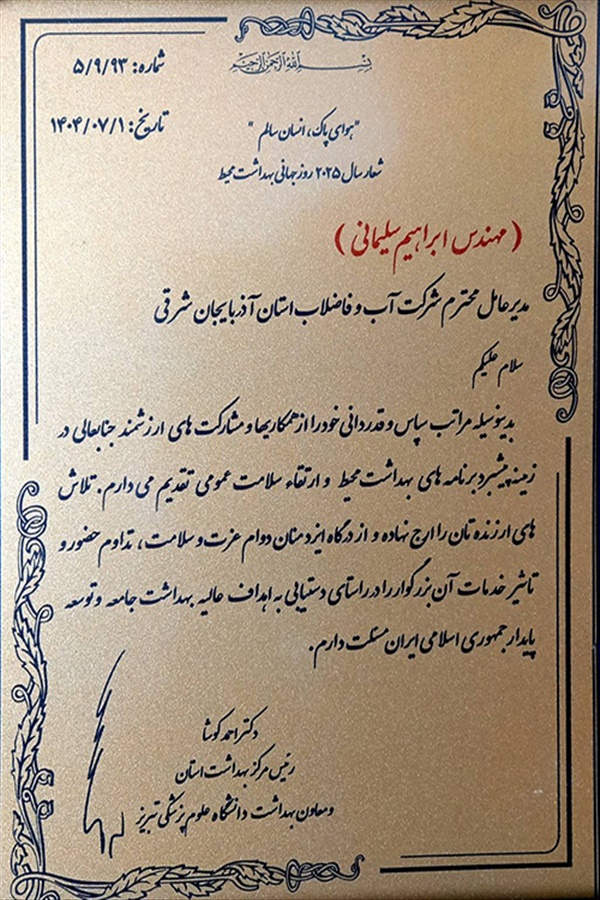 بسم الله الرحمن الرحیم
شماره: ۵/۹/۹۳
تاریخ: ۱۴۰۴/۰۷/۱
"هوای پاک، انسان سالم"
شعار سال ۲۰۲۵ روز جهانی بهداشت محیط
(مهندس ابراهیم سلیمانی)
مدیر عامل محترم شرکت آب و فاضلاب استان آذربایجان شرقی
سلام علیکم
بدینوسیله مراتب سپاس و قدردانی خود را از همکاریها و مشارکت های ارزشمند جنابعالی در
زمینه پیشبرد برنامه های بهداشت محیط و ارتقاء سلامت عمومی تقدیم می دارم. تلاش
های ارزنده تان را ارج نهاده و از درگاه ایزد منان دوام عزت و سلامت، تداوم حضور و
تاثیر خدمات آن بزرگوار را در راستای دستیابی به اهداف عالیه بهداشت جامعه و توسعه
پایدار جمهوری اسلامی ایران مسئلت دارم.
دکتر احمد کوشا
رئیس مرکز بهداشت استان
و معاون بهداشت دانشگاه علوم پزشکی تبریز